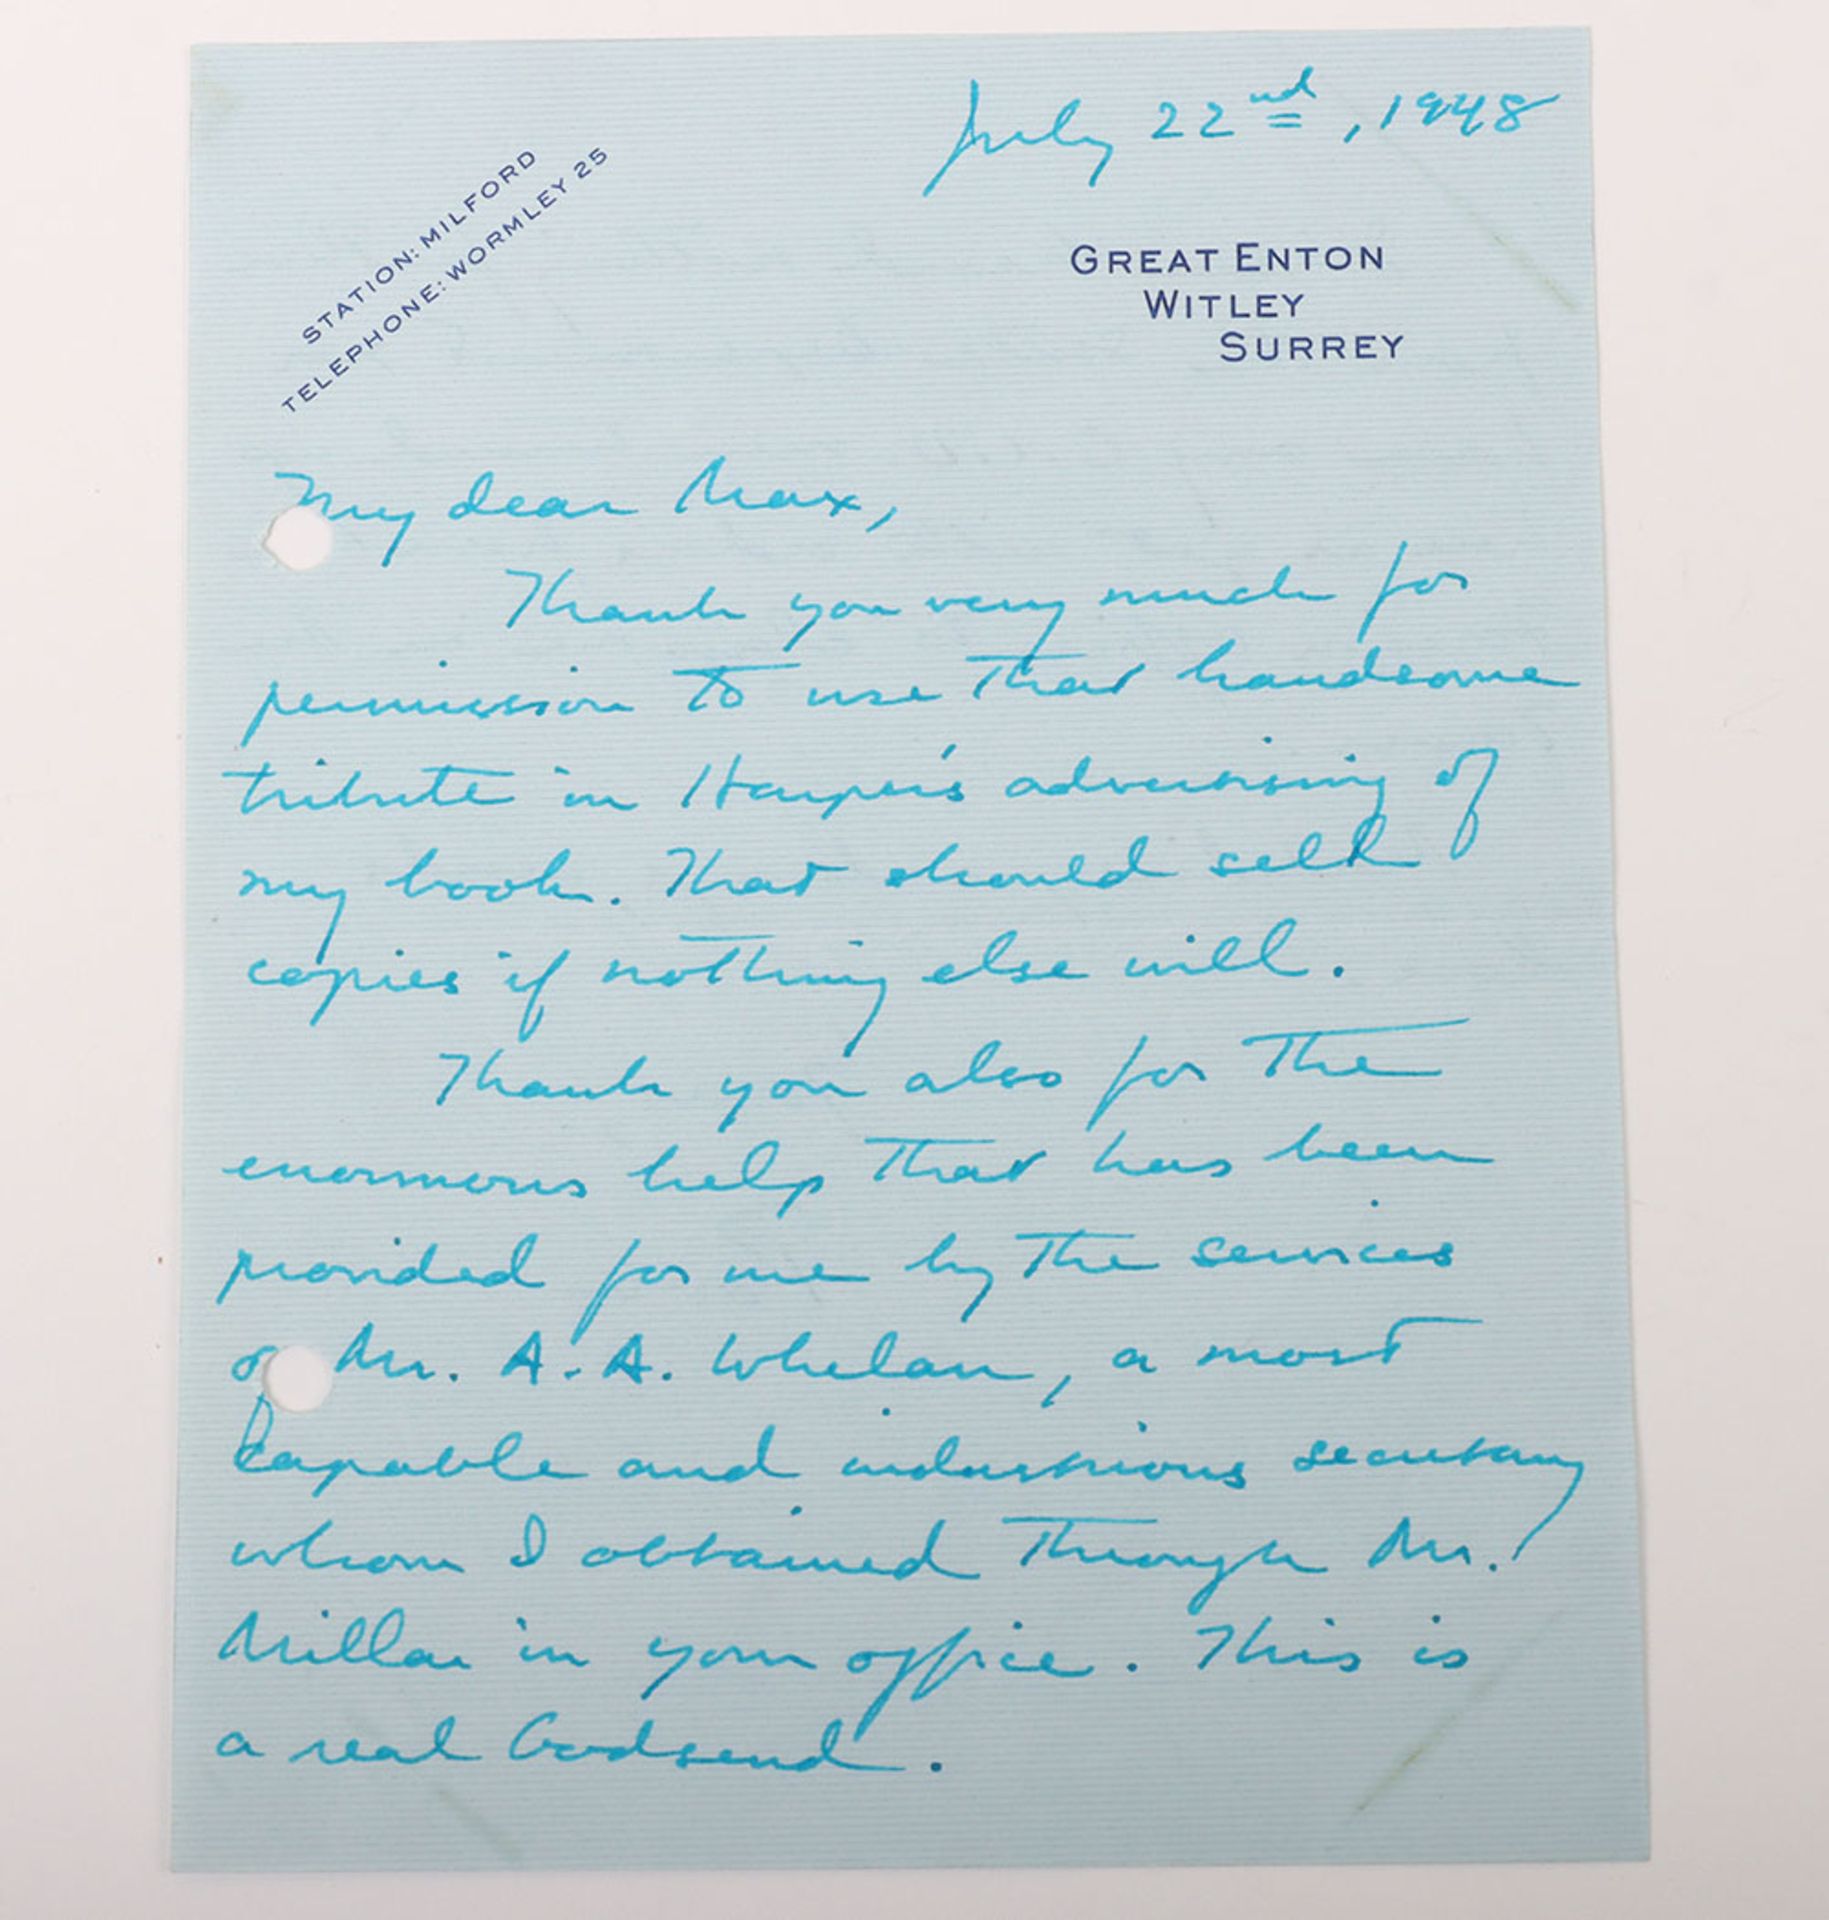 July 22nd, 1948
STATION: MILFORD
TELEPHONE: WORMLEY 25
GREAT ENTON
WITLEY
SURREY
My dear Max,
Thank you very much for
permission to use that handsome
tribute in Harper's advertising of
my book. That should sell
copies if nothing else will.
Thank you also for the
enormous help that has been
provided for me by the services
of Mr. A. A. Whelan, a most
capable and industrious secretary
whom I obtained through Mr.
Millar in your office. This is
a real Godsend.